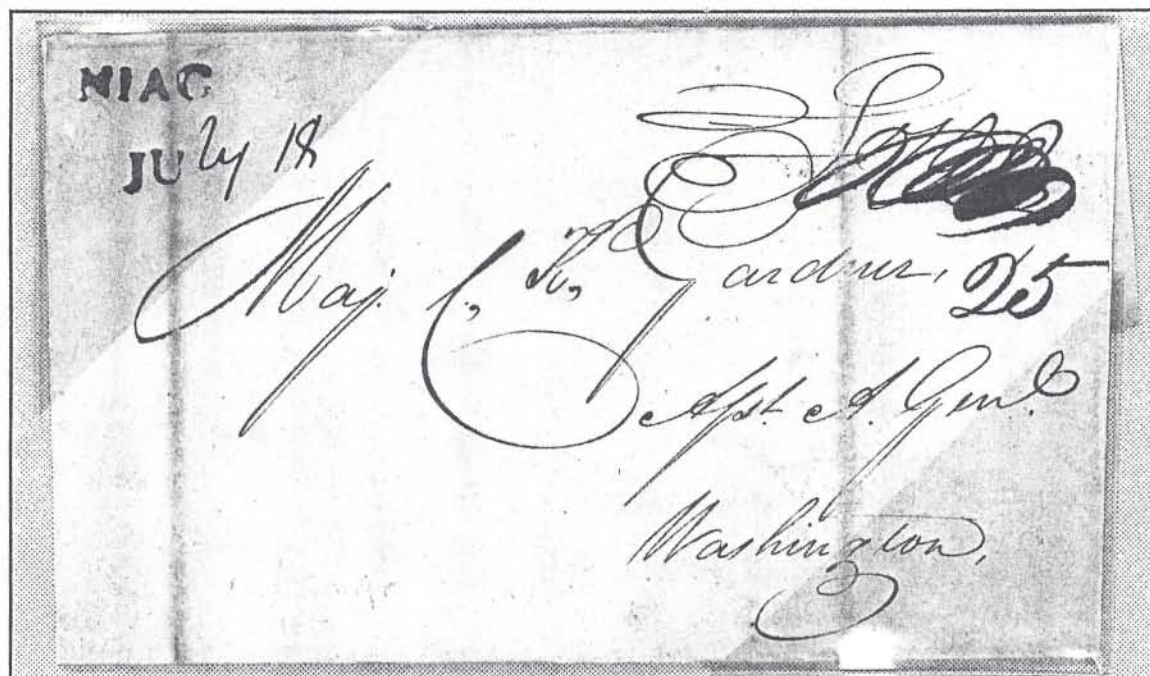 NIAG
JUly 18
Maj. C. K. Gardner,
25
Asst. A. Genl.
Washington,